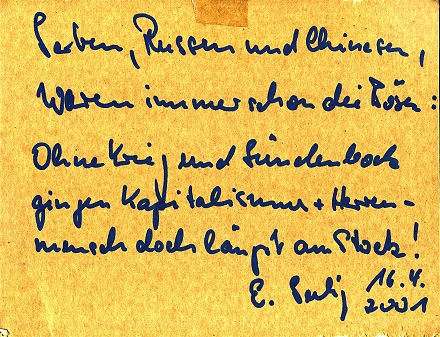 Serben, Russen und Chinesen,
Waren immer schon die Bösen:
Ohne Krieg und Sündenbock
gingen Kapitalismus + Herren-
mensch doch längst am Stock!
E. 16.4.
2001